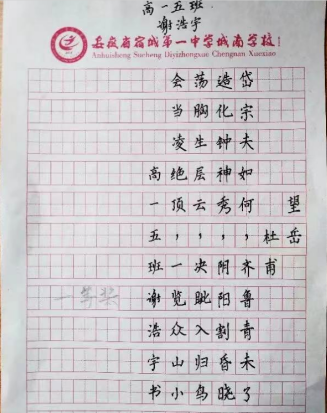 高一五班
谢浩宇
安徽省宿城第一中学城南学校
Anhuisheng Sucheng Diyizhongxue Chengnan Xuexiao
望岳
杜甫
岱宗夫如何，齐鲁青未了
造化钟神秀，阴阳割昏晓
荡胸生层云，决眦入归鸟
会当凌绝顶，一览众山小
高一五班谢浩宇书
一等奖